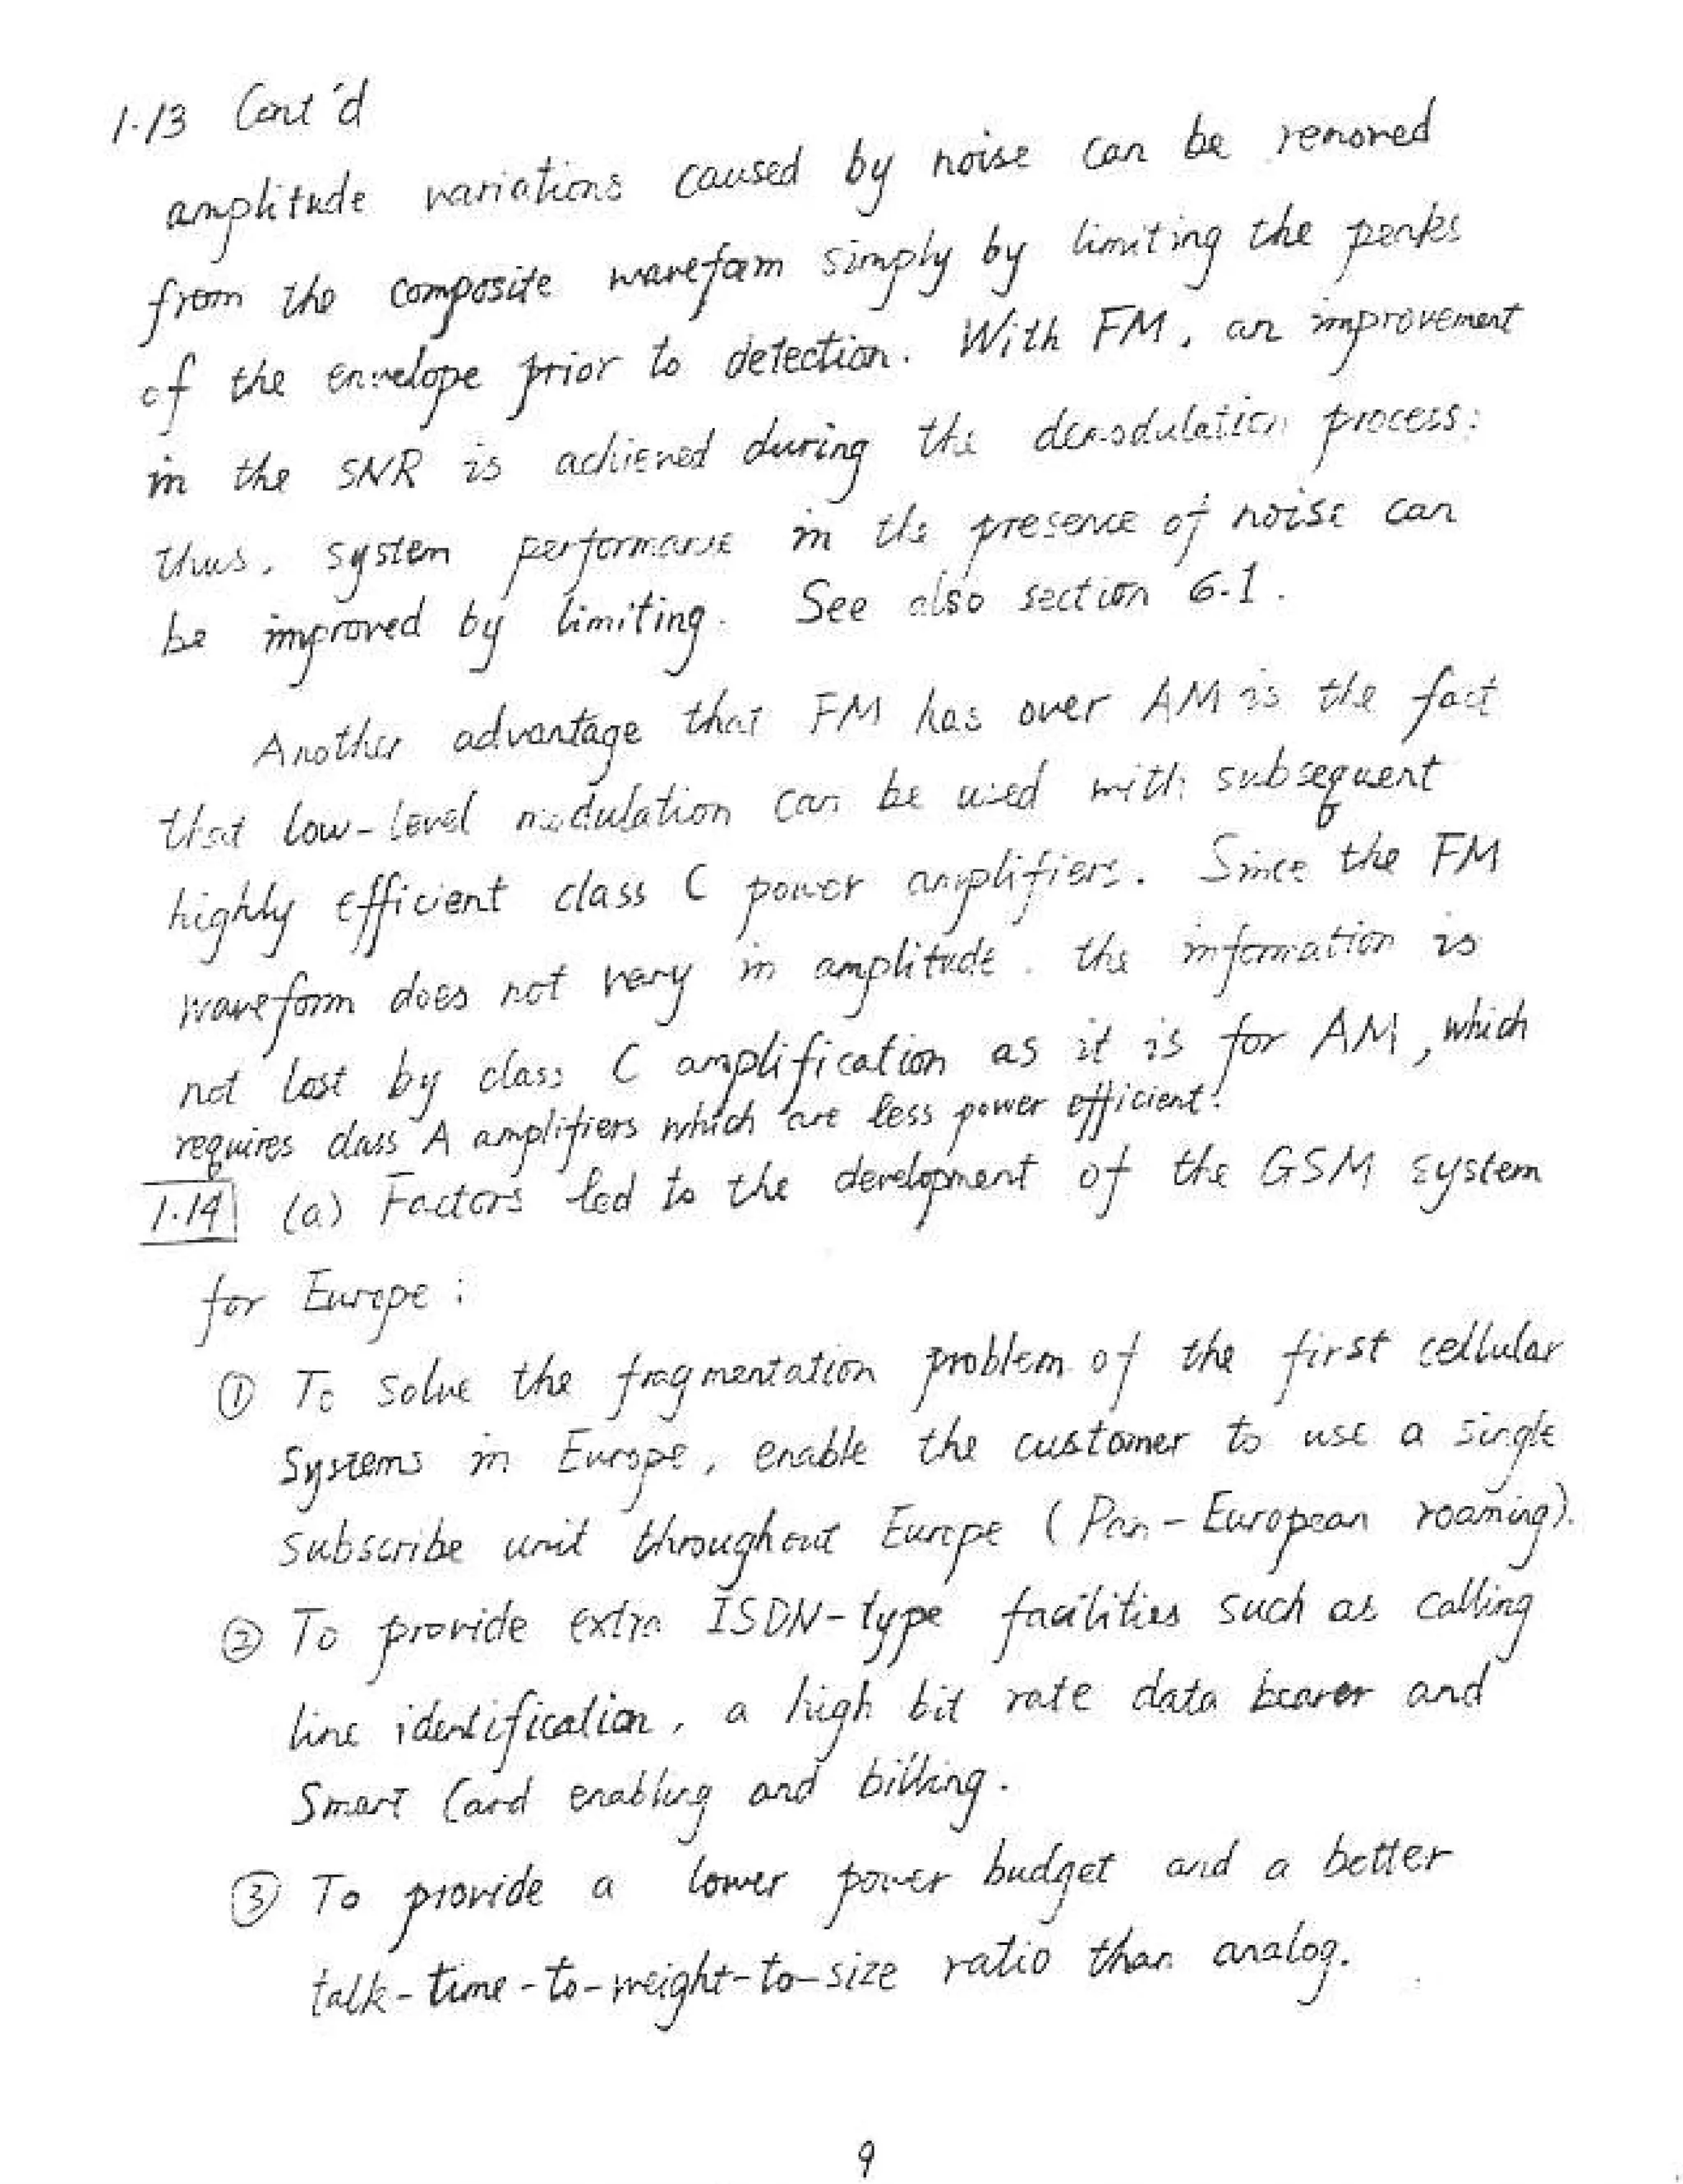 1.13 Cont'd
amplitude variations caused by noise can be removed
from the composite waveform simply by limiting the peaks
of the envelope prior to detection. With FM, an improvement
in the SNR is achieved during the demodulation process;
thus, system performance in the presence of noise can
be improved by limiting. See also section 6.1.
Another advantage that FM has over AM is the fact
that low-level modulation can be used with subsequent
highly efficient class C power amplifiers. Since the FM
waveform does not vary in amplitude, the information is
not lost by class C amplification as it is for AM, which
requires class A amplifiers which are less power efficient.
1.14 (a) Factors led to the development of the GSM system
for Europe:
① To solve the fragmentation problem of the first cellular
Systems in Europe, enable the customer to use a single
subscribe unit throughout Europe (Pan-European roaming).
② To provide extra ISDN-type facilities such as calling
line identification, a high bit rate data bearer and
Smart Card enabling and billing.
③ To provide a lower power budget and a better
talk-time-to-weight-to-size ratio than analog.
9